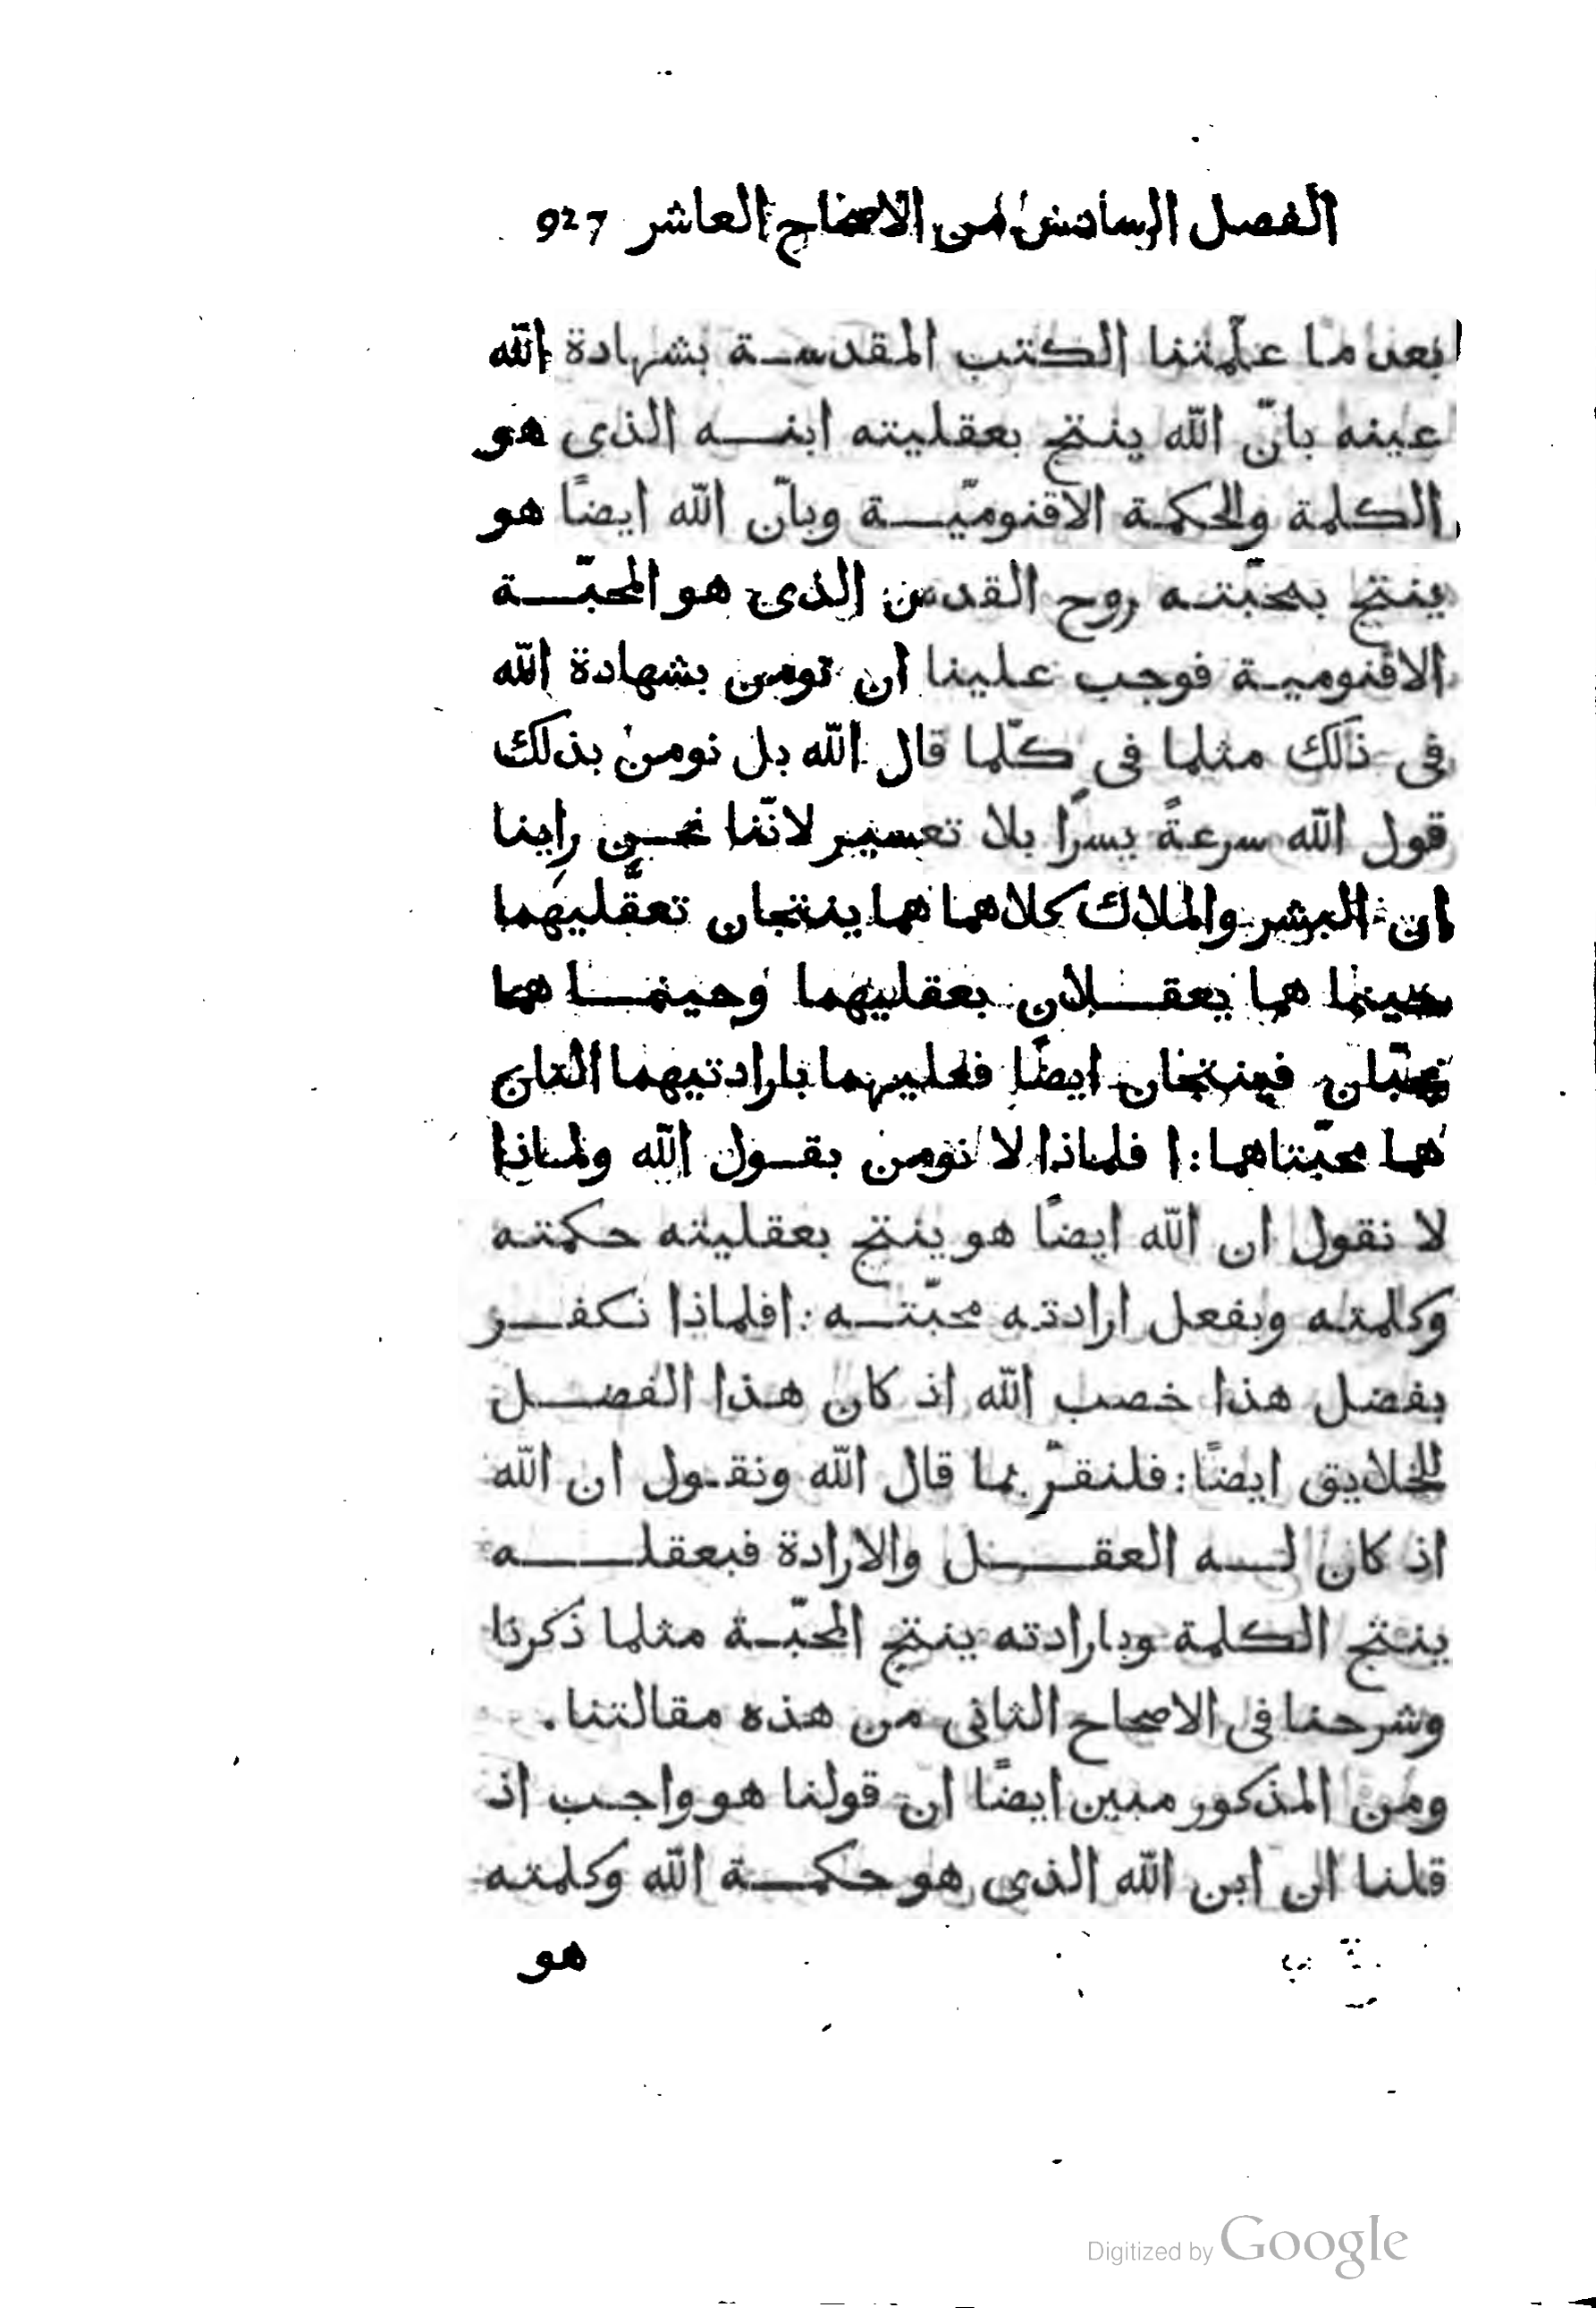 الفصل السادس من الاصحاح العاشر 927
بعد ما علّمتنا الكتب المقدسة بشهادة الله
عينه بانّ الله ينتج بعقليته ابنه الذى هو
الكلمة والحكمة الاقنوميّة وبانّ الله ايضًا هو
ينتج بمحبّته روح القدس الذى هو المحبّة
الاقنومية فوجب علينا ان نومن بشهادة الله
فى ذلك مثلما فى كلّما قال الله بل نومن بذلك
قول الله سرعةً يسرًا بلا تعسير لانّنا نحن راينا
ان البشر والملاك كلاهما هما ينتجان تعقّليهما
حينما هما يعقلان بعقليهما وحينما هما
يحبّان فينتجان ايضًا فعليهما بارادتيهما التان
هما محبّتاهما: ا فلماذا لا نومن بقول الله ولماذا
لا نقول ان الله ايضًا هو ينتج بعقليته حكمته
وكلمته وبفعل ارادته محبّته: افلماذا نكفر
بفضل هذا خصب الله اذ كان هذا الفضل
للخلايق ايضًا: فلنقرّ بما قال الله ونقول ان الله
اذ كان له العقل والارادة فبعقله
ينتج الكلمة وبارادته ينتج المحبّة مثلما ذكرنا
وشرحنا فى الاصحاح الثانى من هذه مقالتنا.
ومن المذكور مبين ايضًا ان قولنا هو واجب اذ
قلنا ان ابن الله الذى هو حكمة الله وكلمته
هو
Digitized by Google